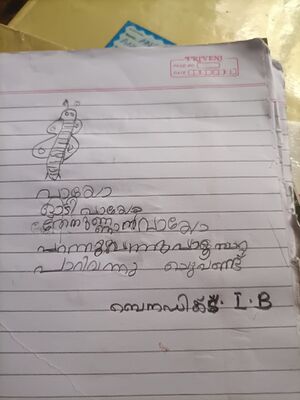 TRIVENI
PAGE NO.
DATE
വായോ
ഓടി വായോ
തേനുണ്ണാൻ വായോ
പറന്നു പറന്നു പാറ്റ
പാറിവന്നു
ബെനഡിക്ട്. I. B